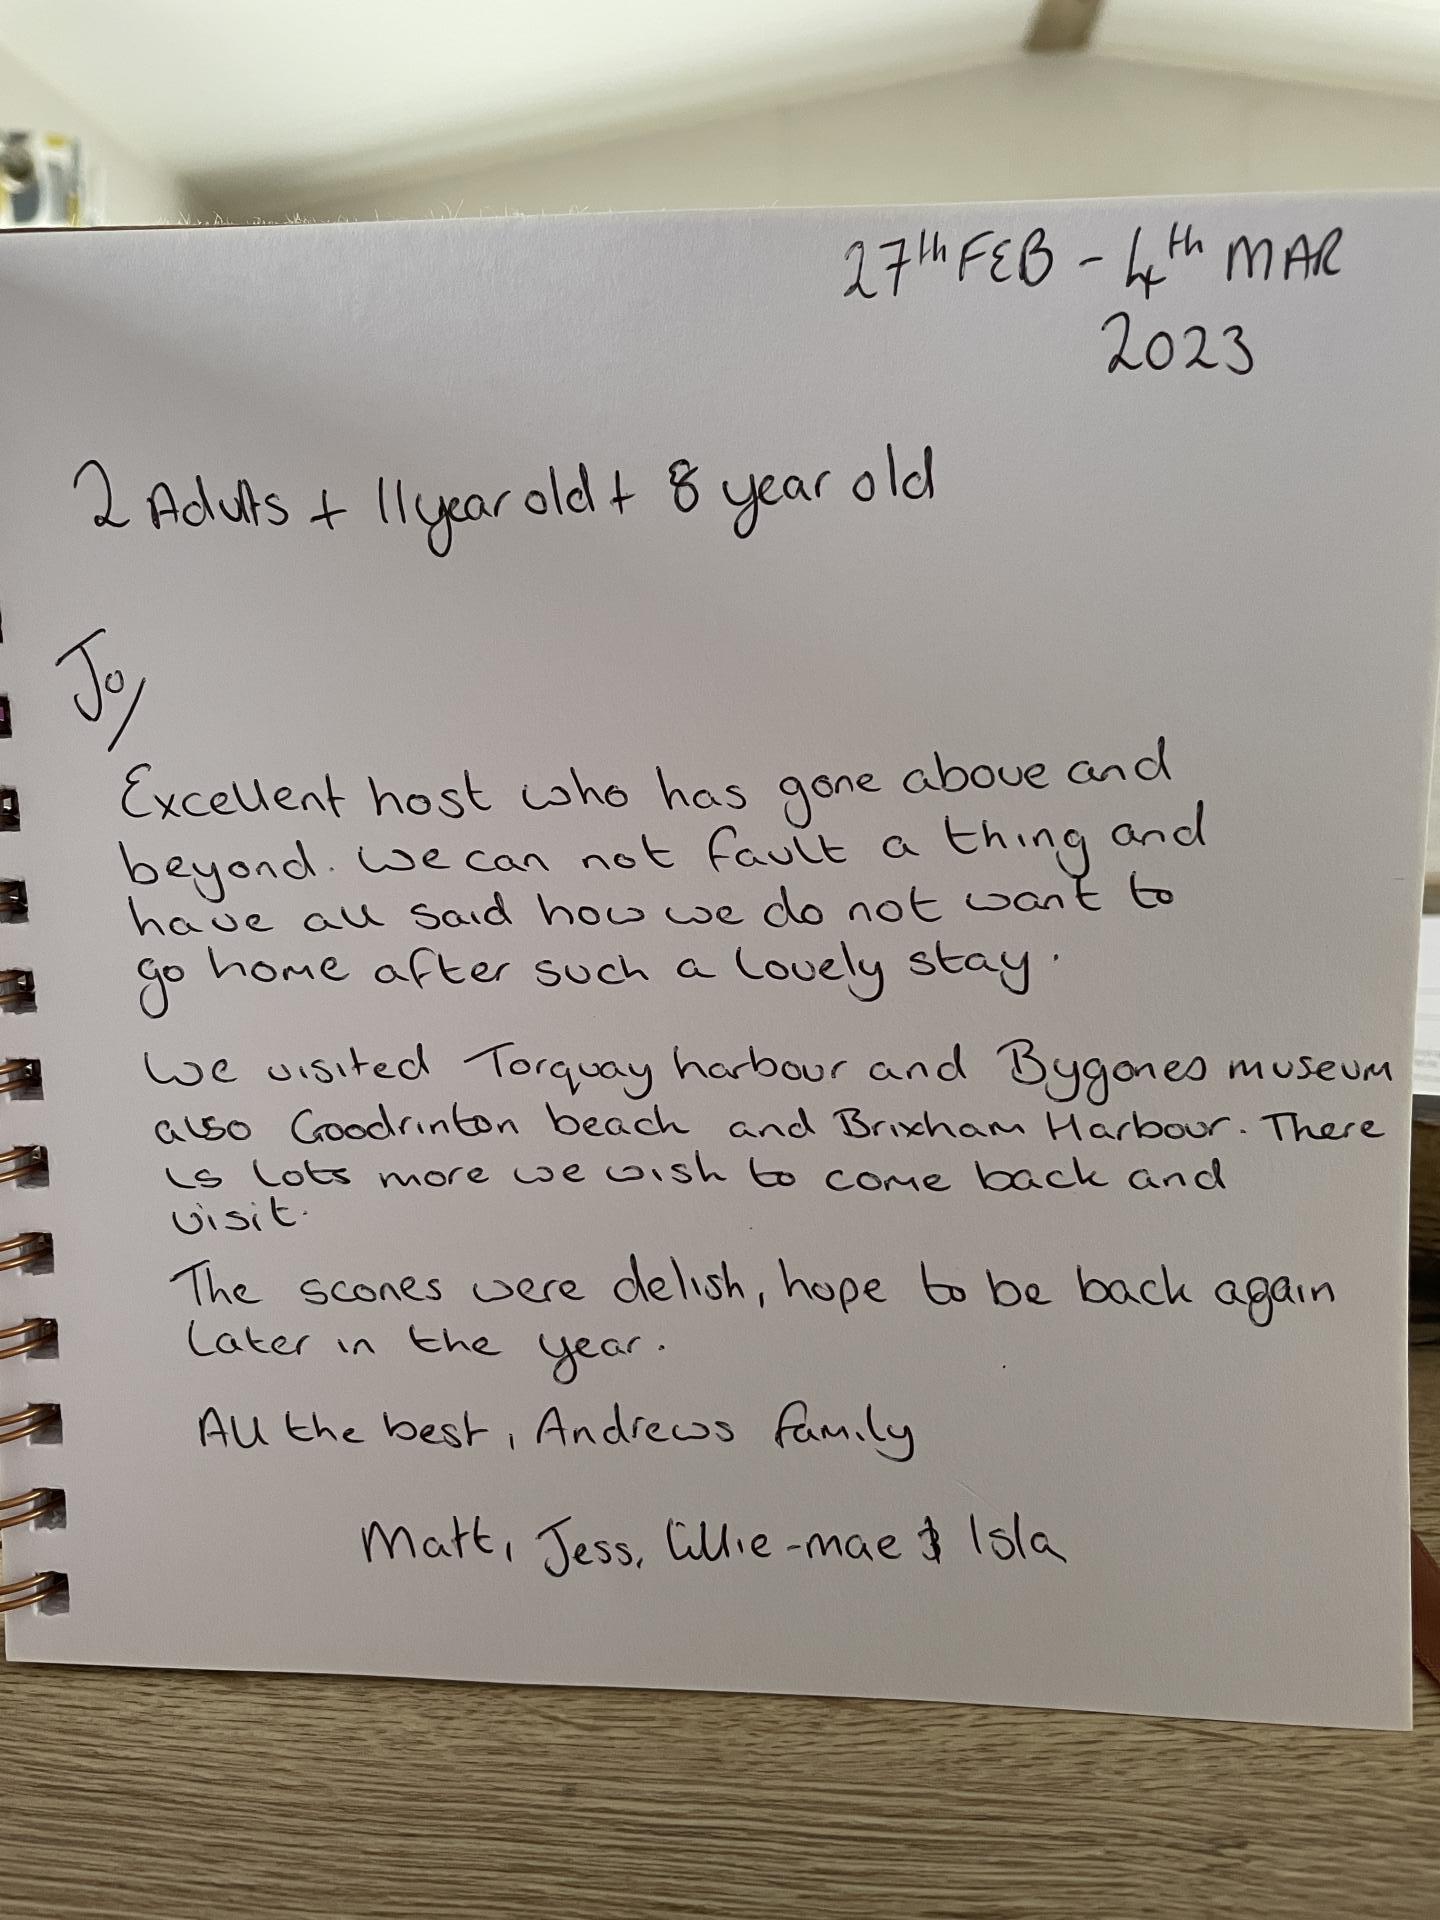 27th FEB - 4th MAR
2023
2 Adults + 11 year old + 8 year old
Jo,
Excellent host who has gone above and
beyond. We can not fault a thing and
have all said how we do not want to
go home after such a lovely stay.
We visited Torquay harbour and Bygones museum
also Goodrinton beach and Brixham Harbour. There
is lots more we wish to come back and
visit.
The scones were delish, hope to be back again
later in the year.
All the best, Andrews family
Matt, Jess, Lillie-mae & Isla